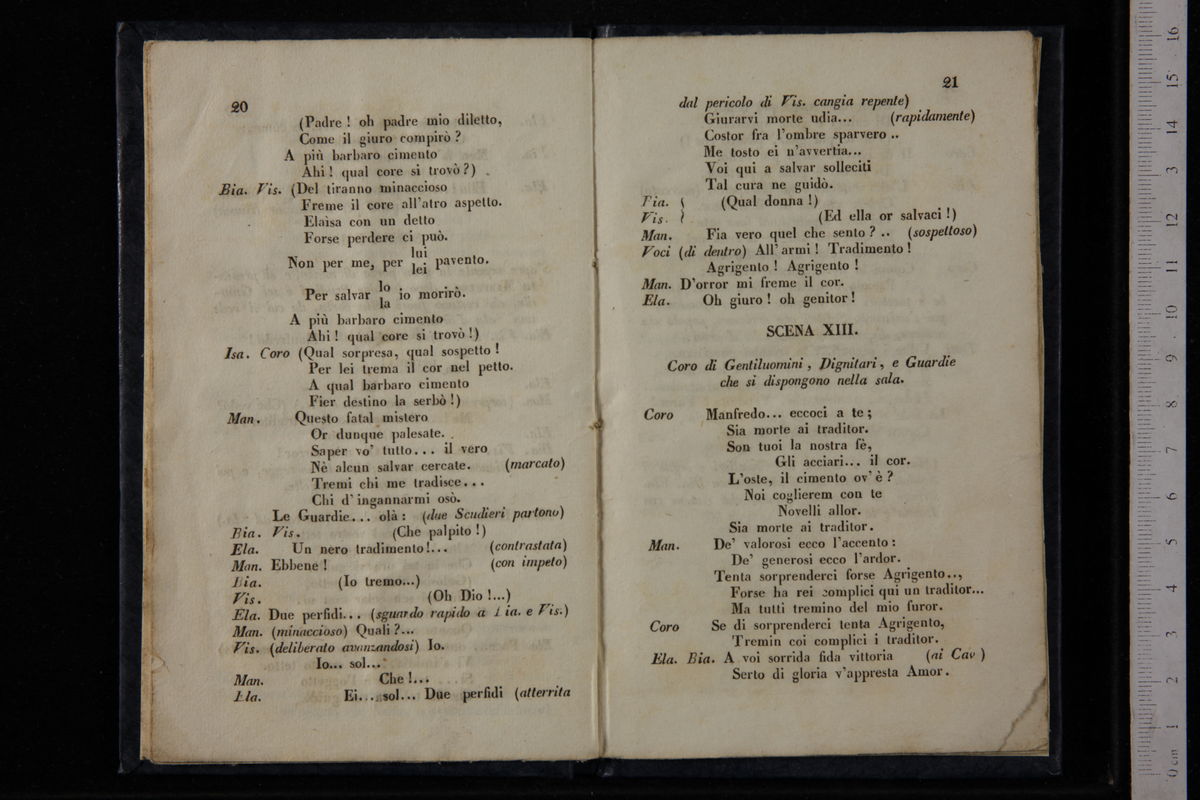 20
(Padre ! oh padre mio diletto,
Come il giuro compirò ?
A più barbaro cimento
Ahi ! qual core si trovò ?)
Bia. Vis. (Del tiranno minaccioso
Freme il core all'atro aspetto.
Elaisa con un detto
Forse perdere ci può.
lui
Non per me, per lei pavento.
lo
Per salvar la io morirò.
A più barbaro cimento
Ahi ! qual core si trovò !)
Isa. Coro (Qual sorpresa, qual sospetto !
Per lei trema il cor nel petto.
A qual barbaro cimento
Fier destino la serbò !)
Man. Questo fatal mistero
Or dunque palesate.
Saper vo' tutto... il vero
Nè alcun salvar cercate. (marcato)
Tremi chi me tradisce...
Chi d'ingannarmi osò.
Le Guardie... olà : (due Scudieri partono)
Bia. Vis. (Che palpito !)
Ela. Un nero tradimento !... (contrastata)
Man. Ebbene ! (con impeto)
Bia. (Io tremo...)
Vis. (Oh Dio !...)
Ela. Due perfidi... (sguardo rapido a Bia. e Vis.)
Man. (minaccioso) Quali ?...
Vis. (deliberato avanzandosi) Io.
Io... sol...
Man. Che !...
Ela. Ei... sol... Due perfidi (atterrita
21
dal pericolo di Vis. cangia repente)
Giurarvi morte udia... (rapidamente)
Costor fra l'ombre sparvero ..
Me tosto ei n'avvertia...
Voi qui a salvar solleciti
Tal cura ne guidò.
Bia. { (Qual donna !)
Vis. { (Ed ella or salvaci !)
Man. Fia vero quel che sento ? .. (sospettoso)
Voci (di dentro) All'armi ! Tradimento !
Agrigento ! Agrigento !
Man. D'orror mi freme il cor.
Ela. Oh giuro ! oh genitor !
SCENA XIII.
Coro di Gentiluomini, Dignitari, e Guardie
che si dispongono nella sala.
Coro Manfredo... eccoci a te ;
Sia morte ai traditor.
Son tuoi la nostra fè,
Gli acciari... il cor.
L'oste, il cimento ov'è ?
Noi coglierem con te
Novelli allor.
Sia morte ai traditor.
Man. De' valorosi ecco l'accento :
De' generosi ecco l'ardor.
Tenta sorprenderci forse Agrigento..,
Forse ha rei complici qui un traditor...
Ma tutti tremino del mio furor.
Coro Se di sorprenderci tenta Agrigento,
Tremin coi complici i traditor.
Ela. Bia. A voi sorrida fida vittoria (ai Cav )
Serto di gloria v'appresta Amor.
0 cm 1 2 3 4 5 6 7 8 9 10 11 12 13 14 15 16